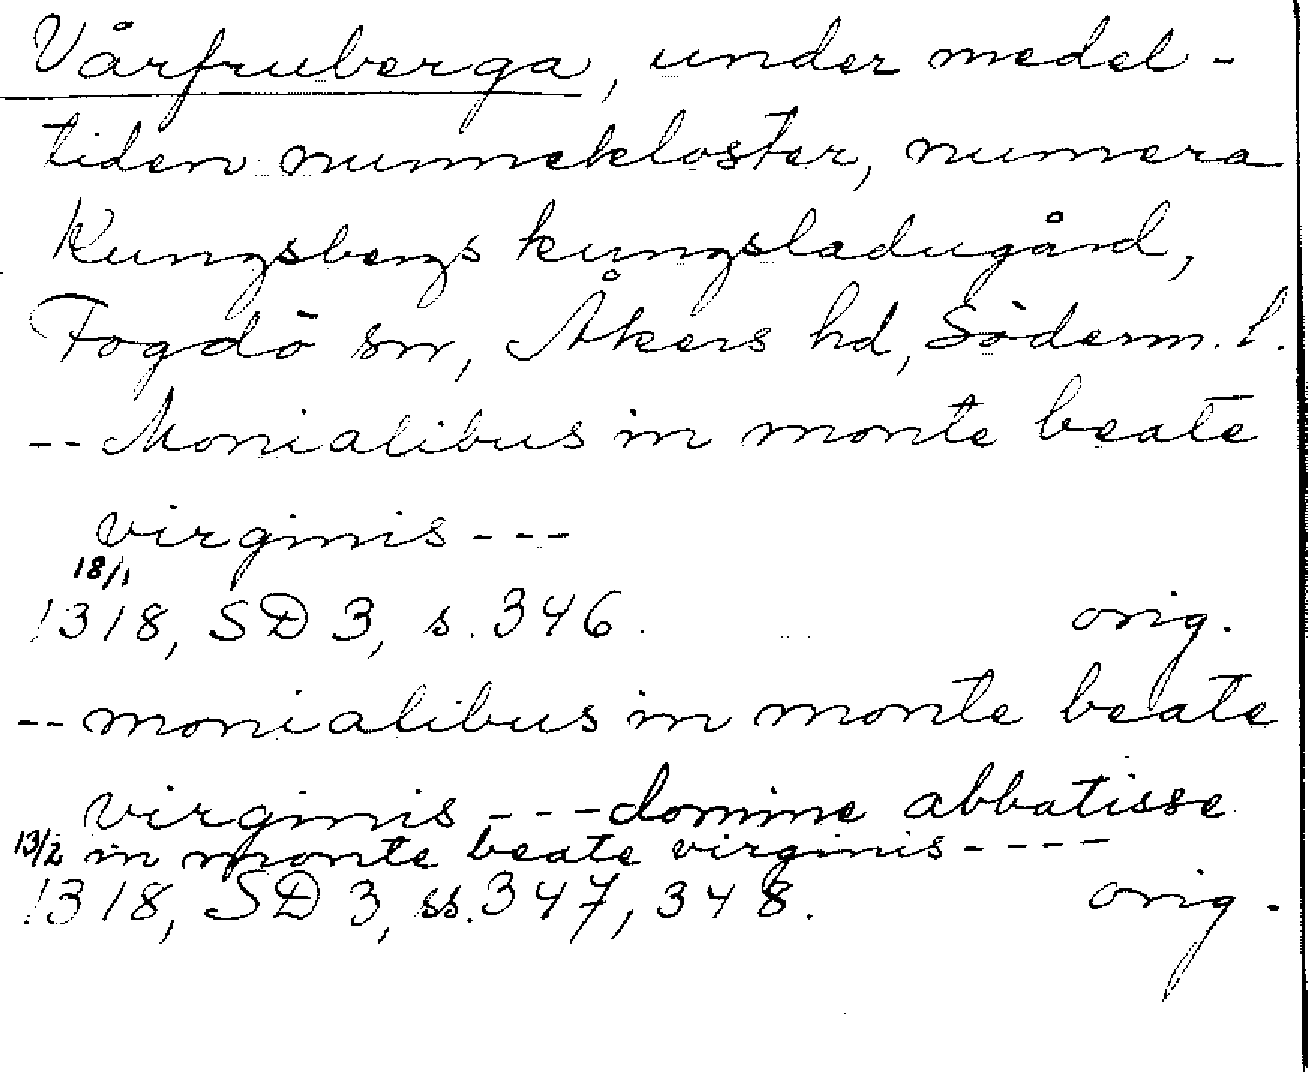 Vårfruberga, under medel-
tiden nunnekloster, numera
Kungsbergs kungsladugård,
Fogdö sn, Åkers hd, Söderm. l.
-- Monialibus in monte beate
virginis ---
18/1
1318, SD 3, s. 346. orig.
-- monialibus in monte beate
virginis --- domine abbatisse
13/2 in monte beate virginis ----
1318, SD 3, ss. 347, 348. orig.